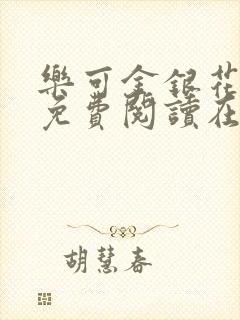 樂可金銀花
免費閱讀在
胡慧春